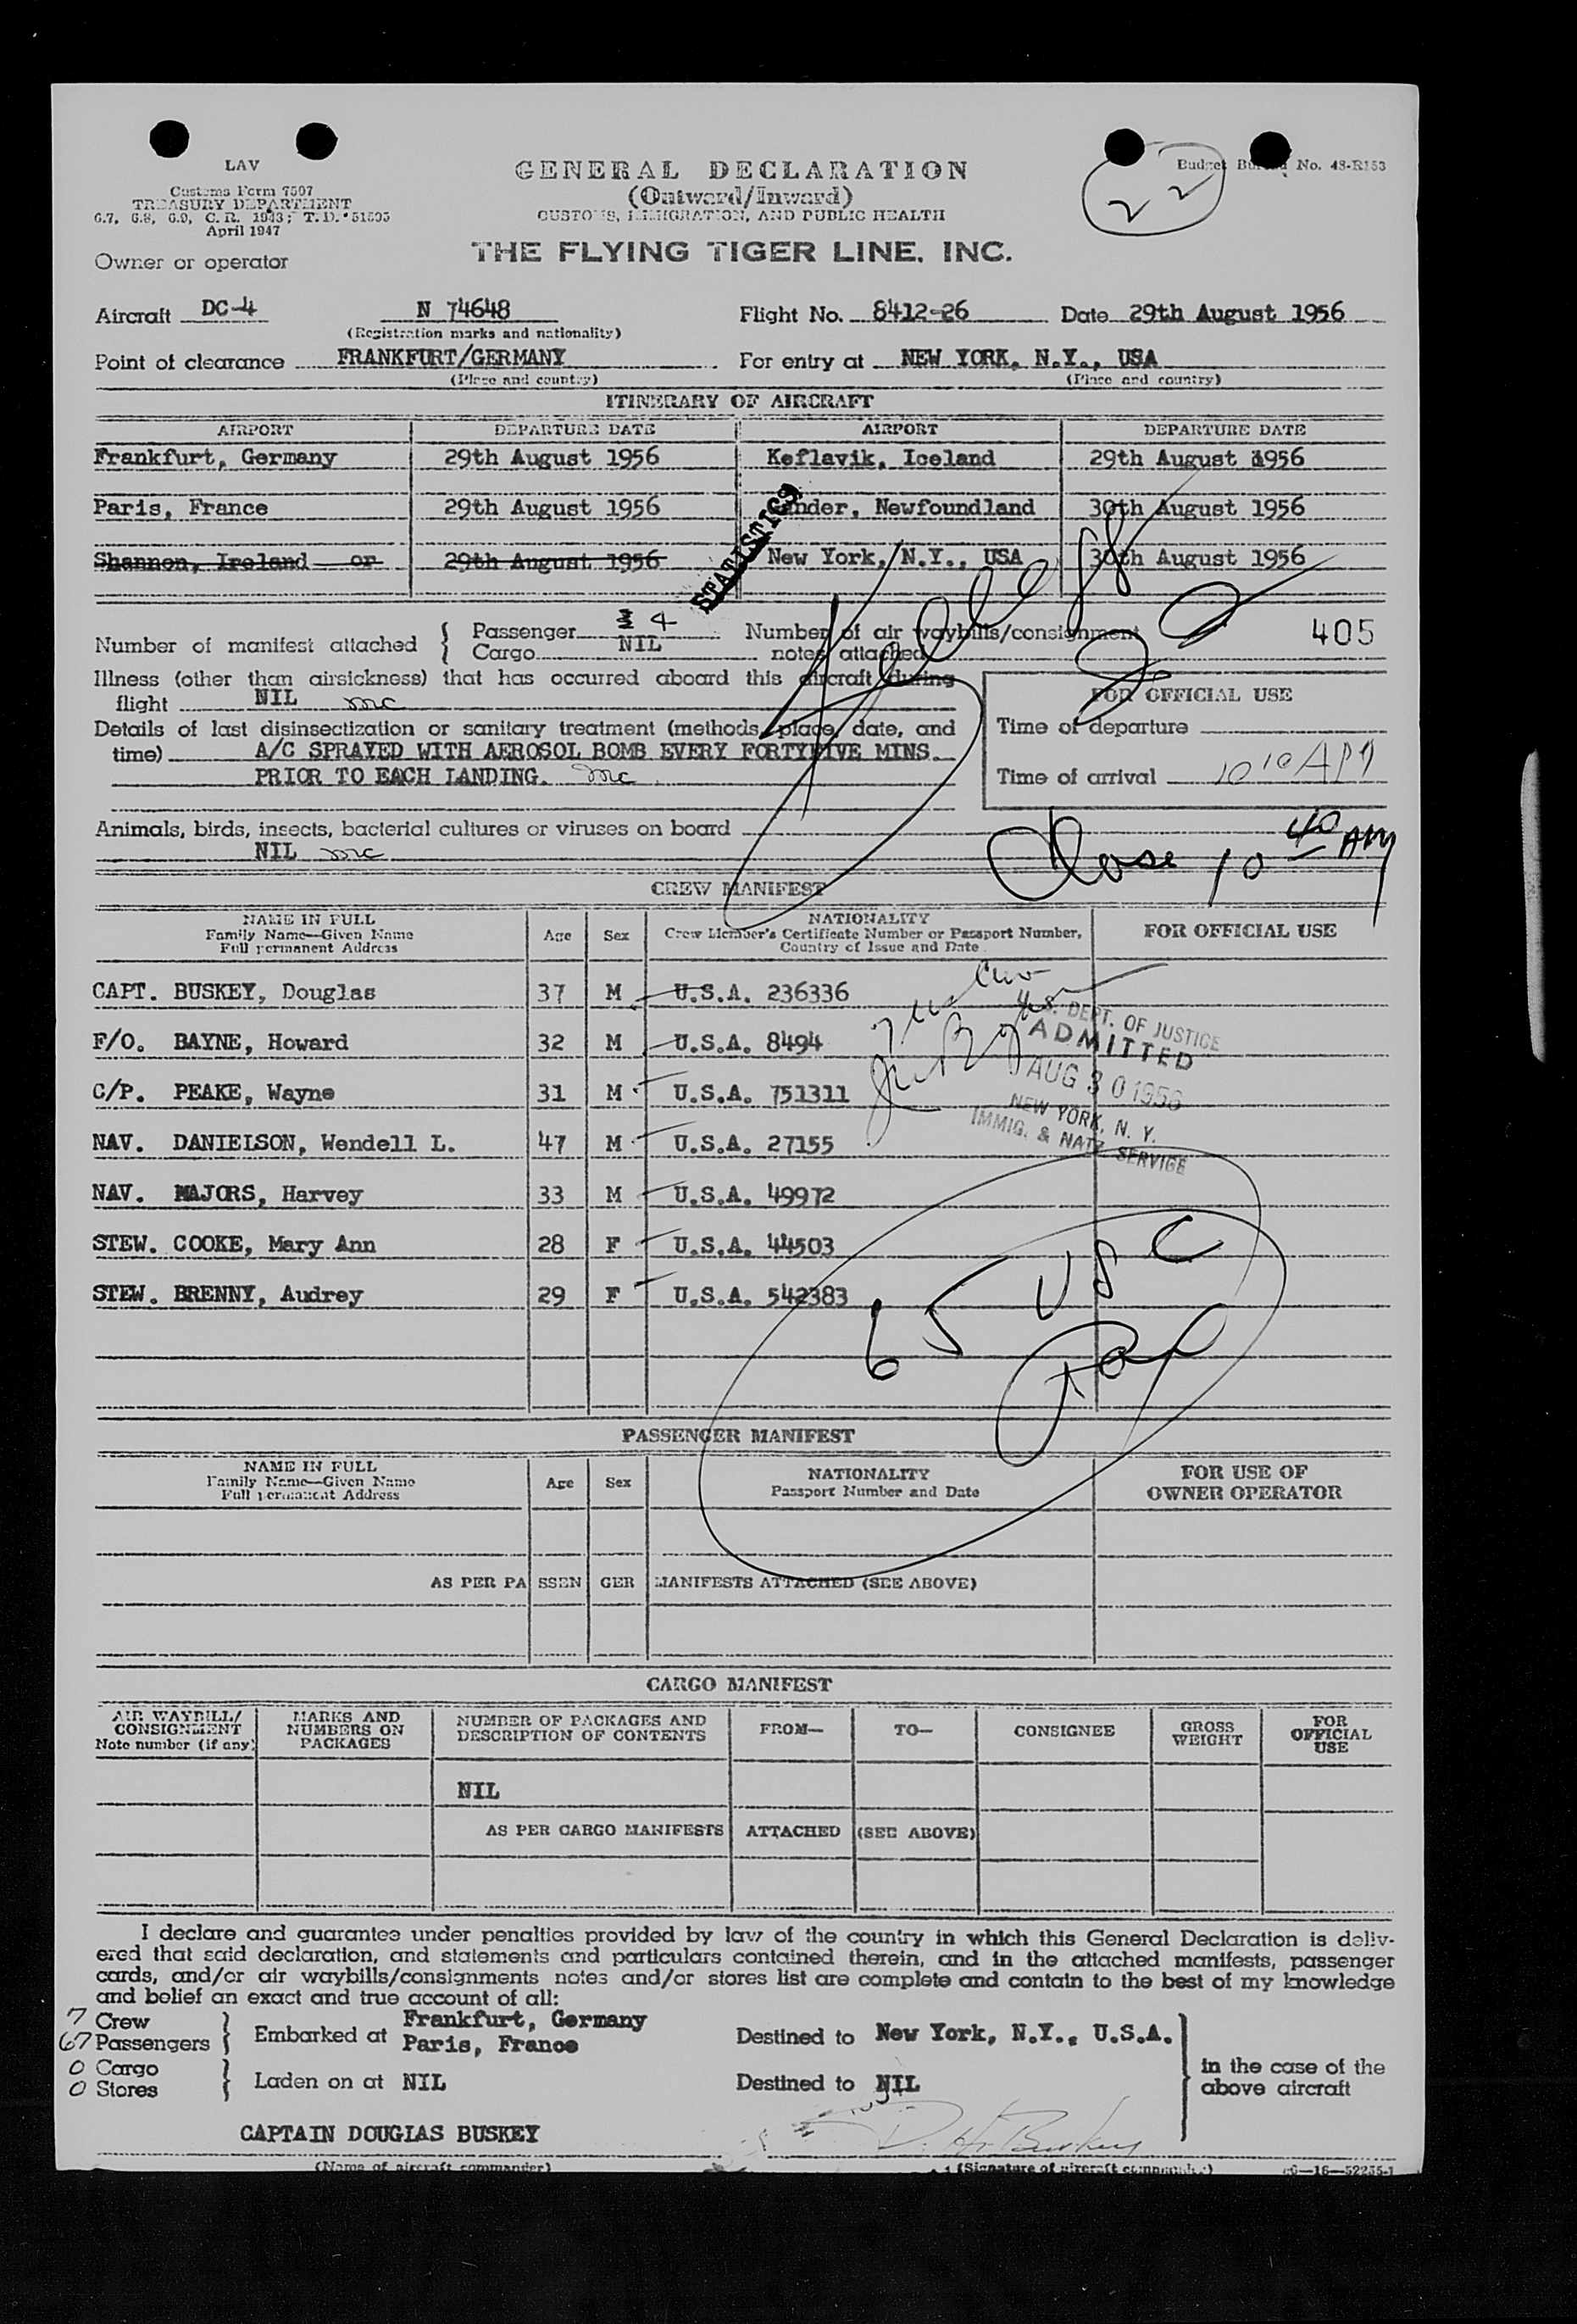 LAV
Customs Form 7507
TREASURY DEPARTMENT
6.7, 6.8, 6.9, C. R. 1943; T. D. 51505
April 1947
Owner or operator
GENERAL DECLARATION
(Outward/Inward)
CUSTOMS, IMMIGRATION, AND PUBLIC HEALTH
THE FLYING TIGER LINE, INC.
Budget Bureau No. 48-R153
22
Aircraft DC-4 N 74648 Flight No. 8412-26 Date 29th August 1956
(Registration marks and nationality)
Point of clearance FRANKFURT/GERMANY For entry at NEW YORK, N.Y., USA
(Place and country) (Place and country)
ITINERARY OF AIRCRAFT
AIRPORT DEPARTURE DATE AIRPORT DEPARTURE DATE
Frankfurt, Germany 29th August 1956 Keflavik, Iceland 29th August 1956
Paris, France 29th August 1956 Gander, Newfoundland 30th August 1956
Shannon, Ireland or 29th August 1956 New York, N.Y., USA 30th August 1956
STATISTICS
Number of manifest attached { Passenger 4 Number of air waybills/consignment 405
Cargo NIL notes attached
Illness (other than airsickness) that has occurred aboard this aircraft during
flight NIL mc
FOR OFFICIAL USE
Details of last disinsectization or sanitary treatment (methods, place, date, and
time) A/C SPRAYED WITH AEROSOL BOMB EVERY FORTYFIVE MINS
PRIOR TO EACH LANDING. mc
Time of departure
Time of arrival 10 10 AM
Animals, birds, insects, bacterial cultures or viruses on board
NIL mc
Close 10 40 AM
CREW MANIFEST
NAME IN FULL
Family Name—Given Name
Full permanent Address
Age Sex
NATIONALITY
Crew Member's Certificate Number or Passport Number,
Country of Issue and Date
FOR OFFICIAL USE
CAPT. BUSKEY, Douglas 37 M U.S.A. 236336
F/O. BAYNE, Howard 32 M U.S.A. 8494
C/P. PEAKE, Wayne 31 M U.S.A. 751311
NAV. DANIELSON, Wendell L. 47 M U.S.A. 27155
NAV. MAJORS, Harvey 33 M U.S.A. 49972
STEW. COOKE, Mary Ann 28 F U.S.A. 44503
STEW. BRENNY, Audrey 29 F U.S.A. 542383
U.S. DEPT. OF JUSTICE
ADMITTED
AUG 30 1956
NEW YORK, N. Y.
IMMIG. & NATZ SERVICE
65 USC
PASSENGER MANIFEST
NAME IN FULL
Family Name—Given Name
Full permanent Address
Age Sex
NATIONALITY
Passport Number and Date
FOR USE OF
OWNER OPERATOR
AS PER PASSENGER MANIFESTS ATTACHED (SEE ABOVE)
CARGO MANIFEST
AIR WAYBILL/
CONSIGNMENT
Note number (if any)
MARKS AND
NUMBERS ON
PACKAGES
NUMBER OF PACKAGES AND
DESCRIPTION OF CONTENTS
FROM— TO— CONSIGNEE
GROSS
WEIGHT
FOR
OFFICIAL
USE
NIL
AS PER CARGO MANIFESTS ATTACHED (SEE ABOVE)
I declare and guarantee under penalties provided by law of the country in which this General Declaration is deliv-
ered that said declaration, and statements and particulars contained therein, and in the attached manifests, passenger
cards, and/or air waybills/consignments notes and/or stores list are complete and contain to the best of my knowledge
and belief an exact and true account of all:
7 Crew
67 Passengers
Embarked at Frankfurt, Germany
Paris, France
Destined to New York, N.Y., U.S.A.
0 Cargo
0 Stores
Laden on at NIL
Destined to NIL
in the case of the
above aircraft
CAPTAIN DOUGLAS BUSKEY
D. H. Buskey
(Name of aircraft commander)
(Signature of aircraft commander)
16—52255-1